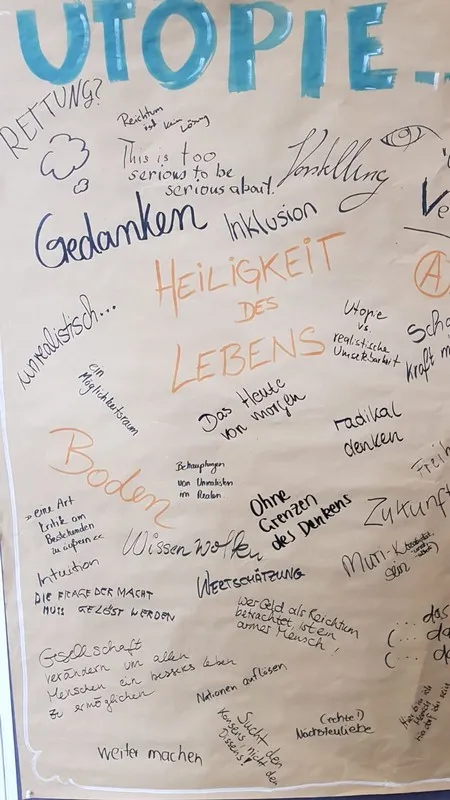 UTOPIE..
RETTUNG?
Reichtum
ist kein Lösung
This is too
serious to be
serious about.
Vorstellung
Gedanken
Inklusion
Ve
HEILIGKEIT
DES
LEBENS
A
unrealistisch...
ein
Möglichkeitsraum
Utopie
vs.
realistische
Umsetzbarkeit
Scha
kraft
Das Heute
von morgen
radikal
denken
Boden
Behauptungen
von Unrealisten
im Realen.
Freih
»eine Art
Kritik am
Bestehenden
zu äußern««
Ohne
Grenzen
des Denkens
Zukunft
Wissen wollen
Intuition
WERTSCHÄTZUNG
sein
DIE FRAGE DER MACHT
MUSS GELÖST WERDEN
Wer Geld als Reichtum
betrachtet, ist ein
armer Mensch!
... das
(... da
(... d
Gesellschaft
verändern um allen
Menschen ein besseres Leben
zu ermöglichen
Nationen auflösen
Sucht den
Konsens nicht den
Dissens!
(rechte!)
Nächstenliebe
weiter machen